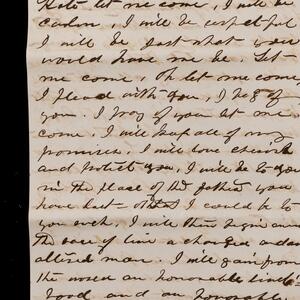 Kate let me come, I will be
careful, I will be respectful
I will be just what you
would have me be. Let
me come, oh let me come
I plead with you, I beg of
you. I pray of you let me
come. I will keep all of my
promises. I will love cherish
and protect you, I will be to you
in the place of the father you
have lost I could be to
you ever, I will then begin anew
the a changed and
altered man. I will gain from
the world an honorable
and an honorable